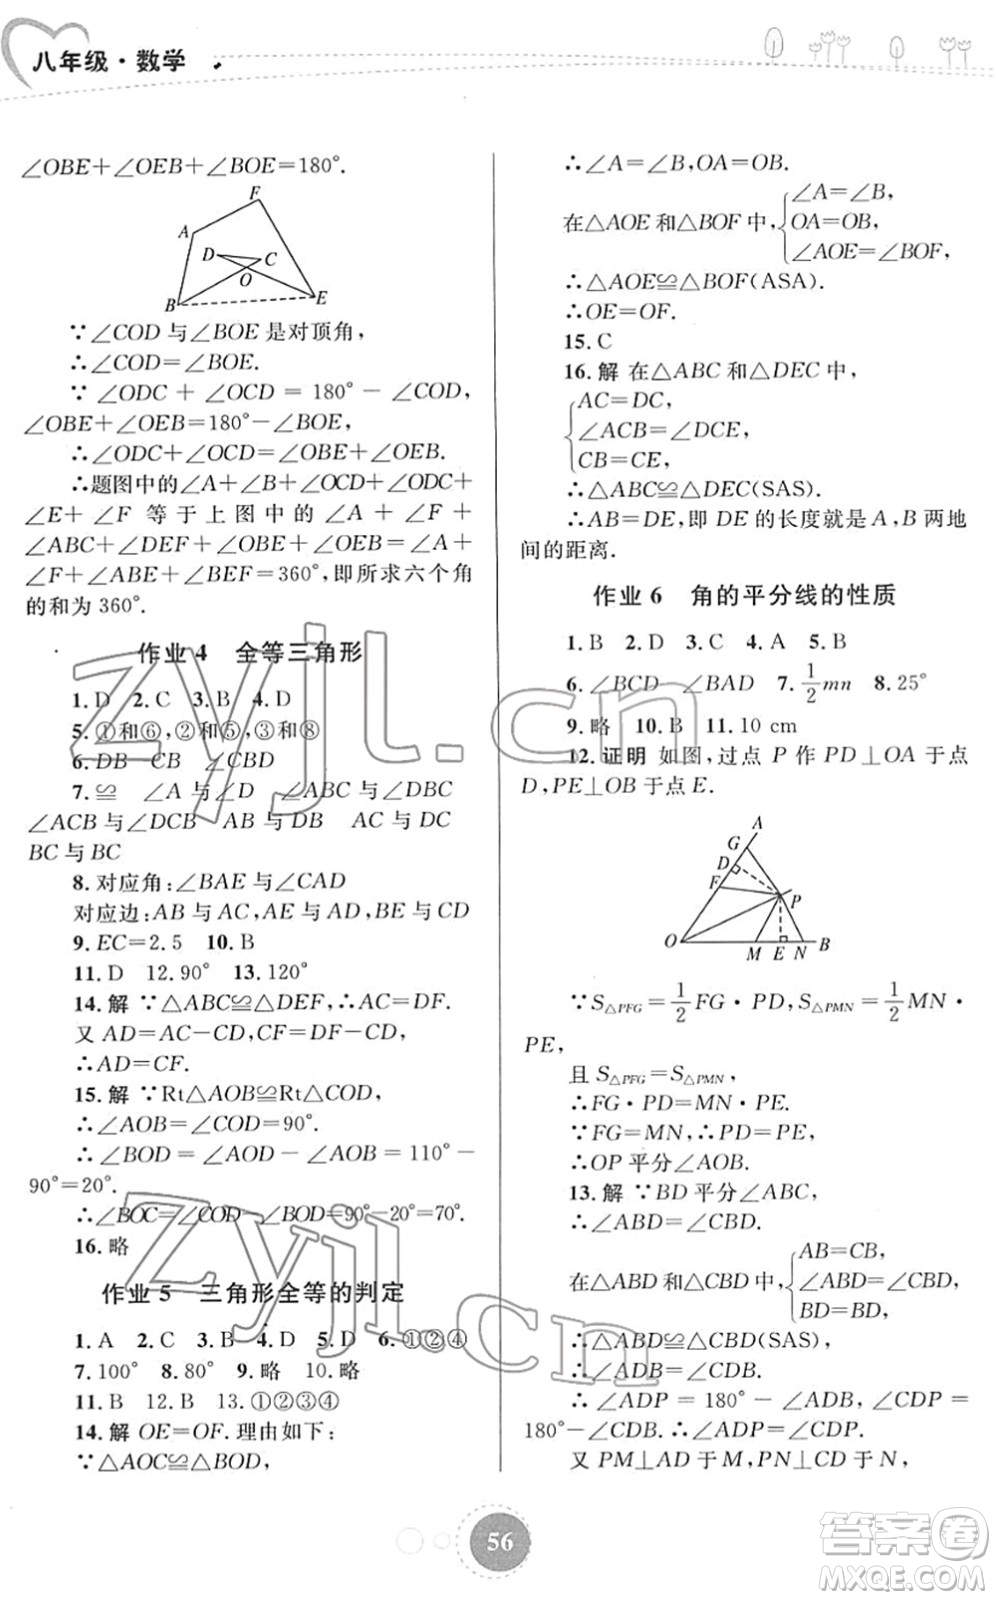 八年级·数学
∠OBE+∠OEB+∠BOE=180°.
F
A
D
C
O
B
E
∵∠COD 与∠BOE 是对顶角,
∴∠COD=∠BOE.
∵ ∠ODC + ∠OCD = 180° − ∠COD,
∠OBE+∠OEB=180°−∠BOE,
∴∠ODC+∠OCD=∠OBE+∠OEB.
∴题图中的∠A+∠B+∠OCD+∠ODC+
∠E+∠F 等于上图中的∠A+∠F+
∠ABC+∠DEF+∠OBE+∠OEB=∠A+
∠F+∠ABE+∠BEF=360°,即所求六个角
的和为 360°.
作业 4 全等三角形
1. D 2. C 3. B 4. D
5. ①和⑥,②和⑤,③和⑧
6. DB CB ∠CBD
7. ≌ ∠A 与∠D ∠ABC 与∠DBC
∠ACB 与∠DCB AB 与 DB AC 与 DC
BC 与 BC
8. 对应角:∠BAE 与∠CAD
对应边:AB 与 AC,AE 与 AD,BE 与 CD
9. EC=2.5 10. B
11. D 12. 90° 13. 120°
14. 解 ∵△ABC≌△DEF,∴AC=DF.
又 AD=AC−CD,CF=DF−CD,
∴AD=CF.
15. 解 ∵Rt△AOB≌Rt△COD,
∴∠AOB=∠COD=90°.
∴∠BOD = ∠AOD − ∠AOB = 110° −
90°=20°.
∴∠BOC=∠COD−∠BOD=90°−20°=70°.
16. 略
作业 5 三角形全等的判定
1. A 2. C 3. B 4. D 5. D 6. ①②④
7. 100° 8. 80° 9. 略 10. 略
11. B 12. B 13. ①②③④
14. 解 OE=OF. 理由如下:
∵△AOC≌△BOD,
∴∠A=∠B,OA=OB.
在△AOE 和△BOF 中,{∠A=∠B,
OA=OB,
∠AOE=∠BOF,
∴△AOE≌△BOF(ASA).
∴OE=OF.
15. C
16. 解 在△ABC 和△DEC 中,
{AC=DC,
∠ACB=∠DCE,
CB=CE,
∴△ABC≌△DEC(SAS).
∴AB=DE,即 DE 的长度就是 A,B 两地
间的距离.
作业 6 角的平分线的性质
1. B 2. D 3. C 4. A 5. B
6. ∠BCD ∠BAD 7. 1/2 mn 8. 25°
9. 略 10. B 11. 10 cm
12. 证明 如图,过点 P 作 PD⊥OA 于点
D,PE⊥OB 于点 E.
A
G
D
F
P
O
M E N B
∵S△PFG=1/2 FG·PD,S△PMN=1/2 MN·
PE,
且 S△PFG=S△PMN,
∴FG·PD=MN·PE.
∵FG=MN,∴PD=PE,
∴OP 平分∠AOB.
13. 解 ∵BD 平分∠ABC,
∴∠ABD=∠CBD.
在△ABD 和△CBD 中,{AB=CB,
∠ABD=∠CBD,
BD=BD,
∴△ABD≌△CBD(SAS).
∴∠ADB=∠CDB.
∴ ∠ADP = 180° − ∠ADB, ∠CDP =
180°−∠CDB. ∴∠ADP=∠CDP.
又 PM⊥AD 于点 M,PN⊥CD 于点 N,
56
zyjl.cn
zyjl.cn
答案圈
MXQE.COM